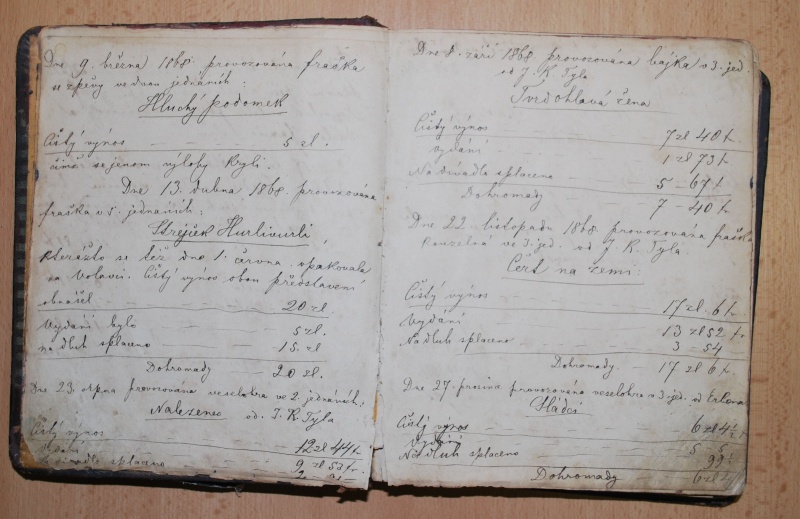 Dne 9. března 1868. provozována fraška
se zpěvy ve dvou jednáních:
Hluchý podomek
Čistý výnos — 5 zl.
čímž se jenom výlohy kryli.
Dne 13. dubna 1868. provozována
fraška v 5. jednáních:
Strýček Hurlivurli,
kterážto se též dne 1. června opakovala
na Volavci. Čistý výnos obou představení
obnášel — 20 zl.
Vydání bylo — 5 zl.
na dluh splaceno — 15. zl
Dohromady — 20 zl.
Dne 23. srpna provozována veselohra ve 2 jednáních:
Nalezenec od J. K. Tyla
Čistý výnos — 12 zl 44 kr.
Vydání — 9 zl 53 kr.
splaceno
Dne 8. září 1868 provozována bajka v 3. jed.
od J. K. Tyla
Tvrdohlavá žena
Čistý výnos — 7 zl 40 k.
Vydání — 1 zl 73 k.
Na divadlo splaceno — 5 — 67 k.
Dohromady — 7 — 40 k.
Dne 22. listopadu 1868 provozována fraška
kouzelná ve 3. jed. od J. K. Tyla:
Čert na zemi:
Čistý výnos — 17 zl. 6 k.
Vydání — 13 zl 52 k.
Na dluh splaceno — 3 — 54
Dohromady — 17 zl 6 k.
Dne 27. prosince provozována veselohra v 3. jed. od
Čistý výnos — 6 zl
Vydání — 5
Na dluh splaceno — 99
Dohromady — 6 zl